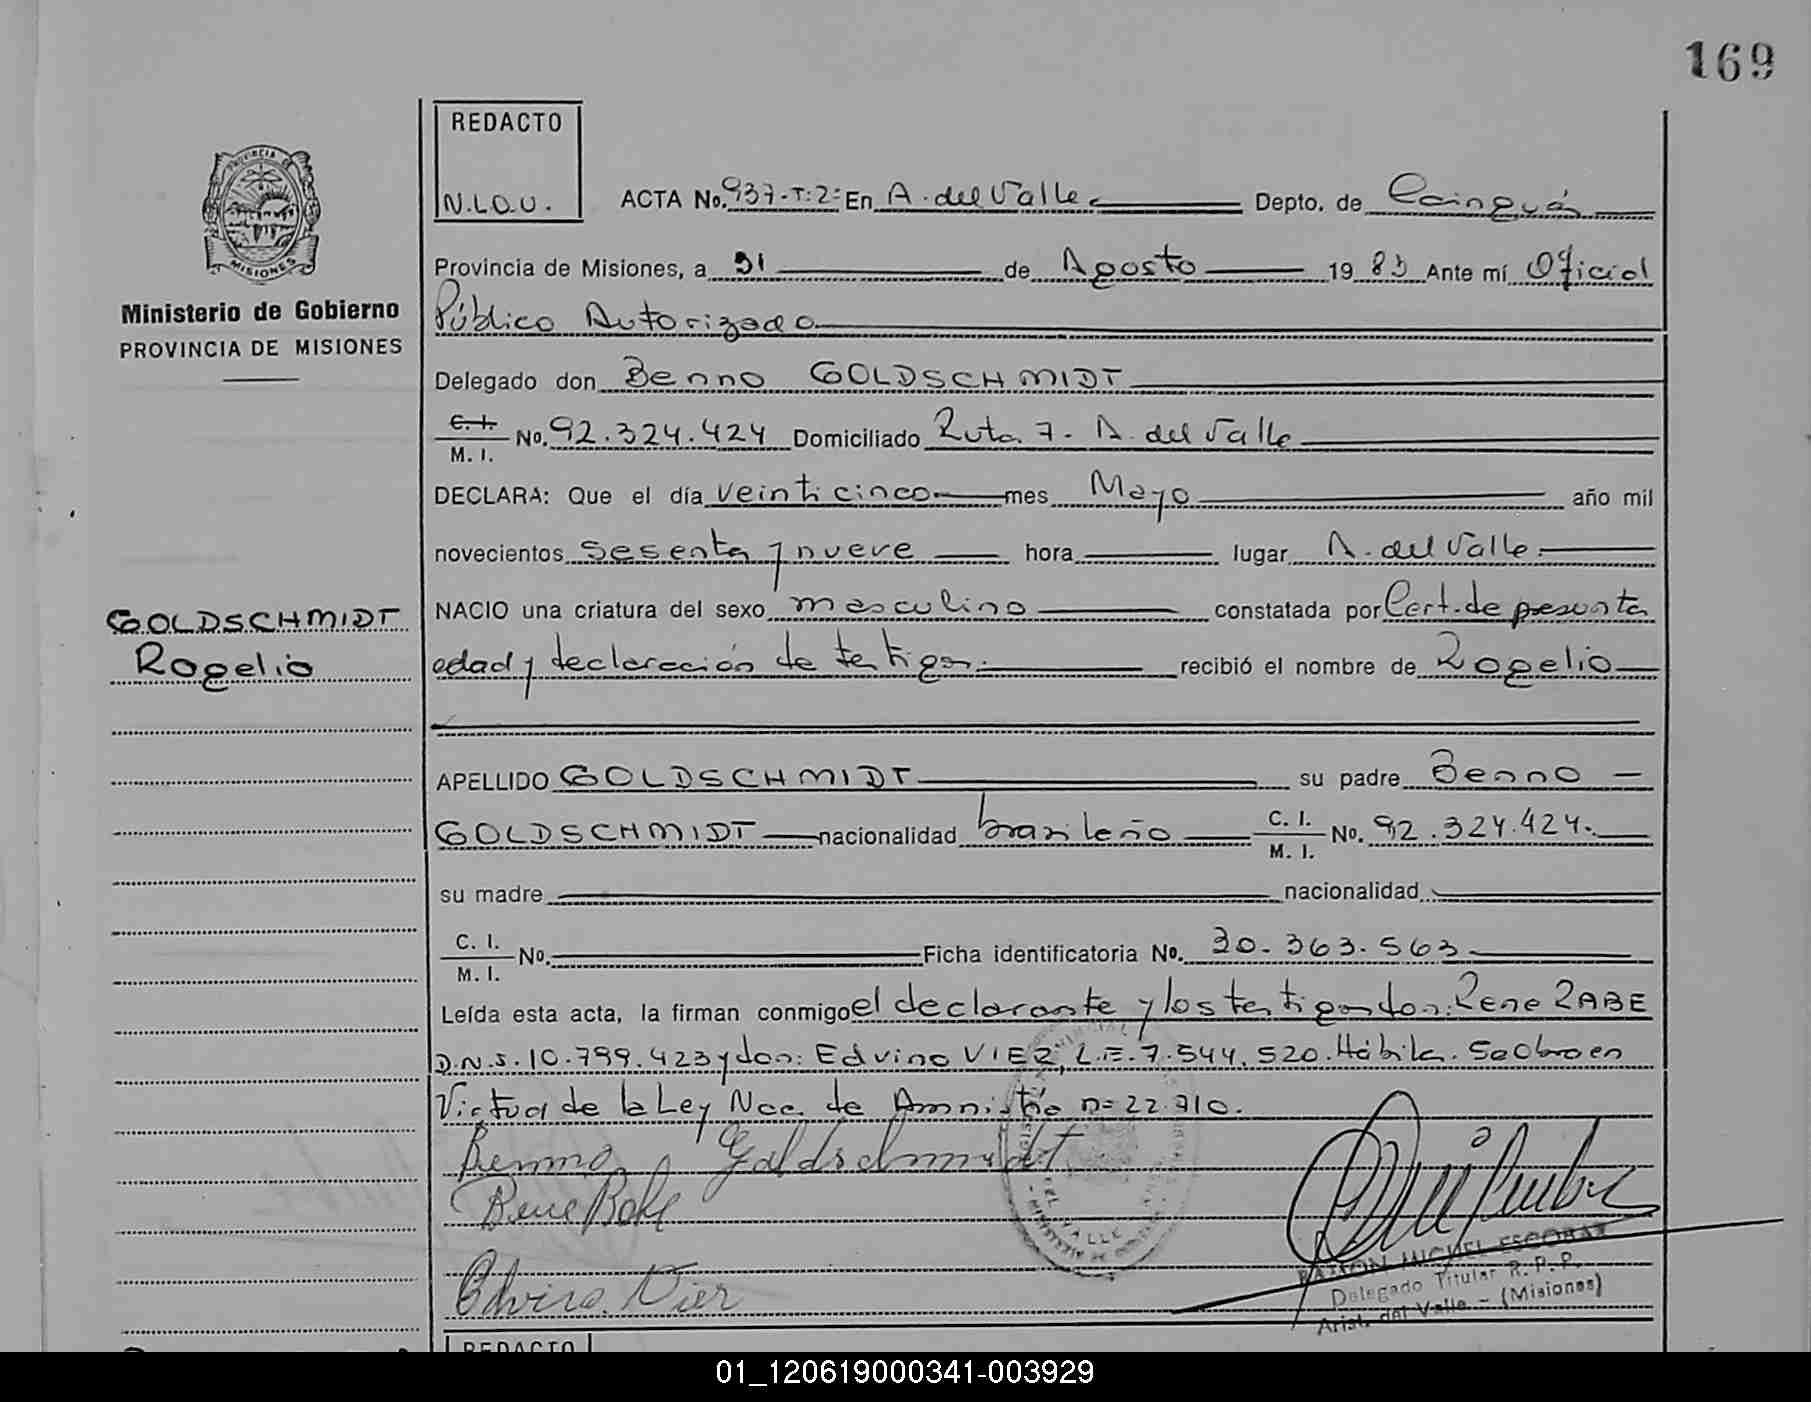 169
REDACTO
N.L.O.U.
ACTA No. 937-T:2: En A. del Valle Depto. de Cainguás
PROVINCIA DE MISIONES
Ministerio de Gobierno
PROVINCIA DE MISIONES
Provincia de Misiones, a 31 de Agosto 19 83 Ante mí Oficial
Público Autorizado
Delegado don Benno GOLDSCHMIDT
C. I.
M. I. No. 92.324.424 Domiciliado Ruta 7. A. del Valle
DECLARA: Que el día veinticinco mes Mayo año mil
novecientos sesenta y nueve hora lugar A. del Valle.
GOLDSCHMIDT
Rogelio
NACIO una criatura del sexo masculino constatada por Cert. de presunta
edad y declaración de testigos. recibió el nombre de Rogelio
APELLIDO GOLDSCHMIDT su padre Benno
GOLDSCHMIDT nacionalidad brasileño C. I.
M. I. No. 92.324.424.
su madre nacionalidad
C. I.
M. I. No. Ficha identificatoria No. 20.363.563
Leída esta acta, la firman conmigo el declarante y los testigos don: Rene RABE
D.N.I. 10.799.423 y don: Edvino VIER, L.E. 7.544.520. Hábiles. Se Obro en
Virtud de la Ley Nac. de Amnistía nº 22.710.
Benno Goldschmidt
Edvino Vier
RAMON MIGUEL ESCOBAR
Delegado Titular R. P. P.
Arist. del Valle - (Misiones)
REDACTO
01_120619000341-003929